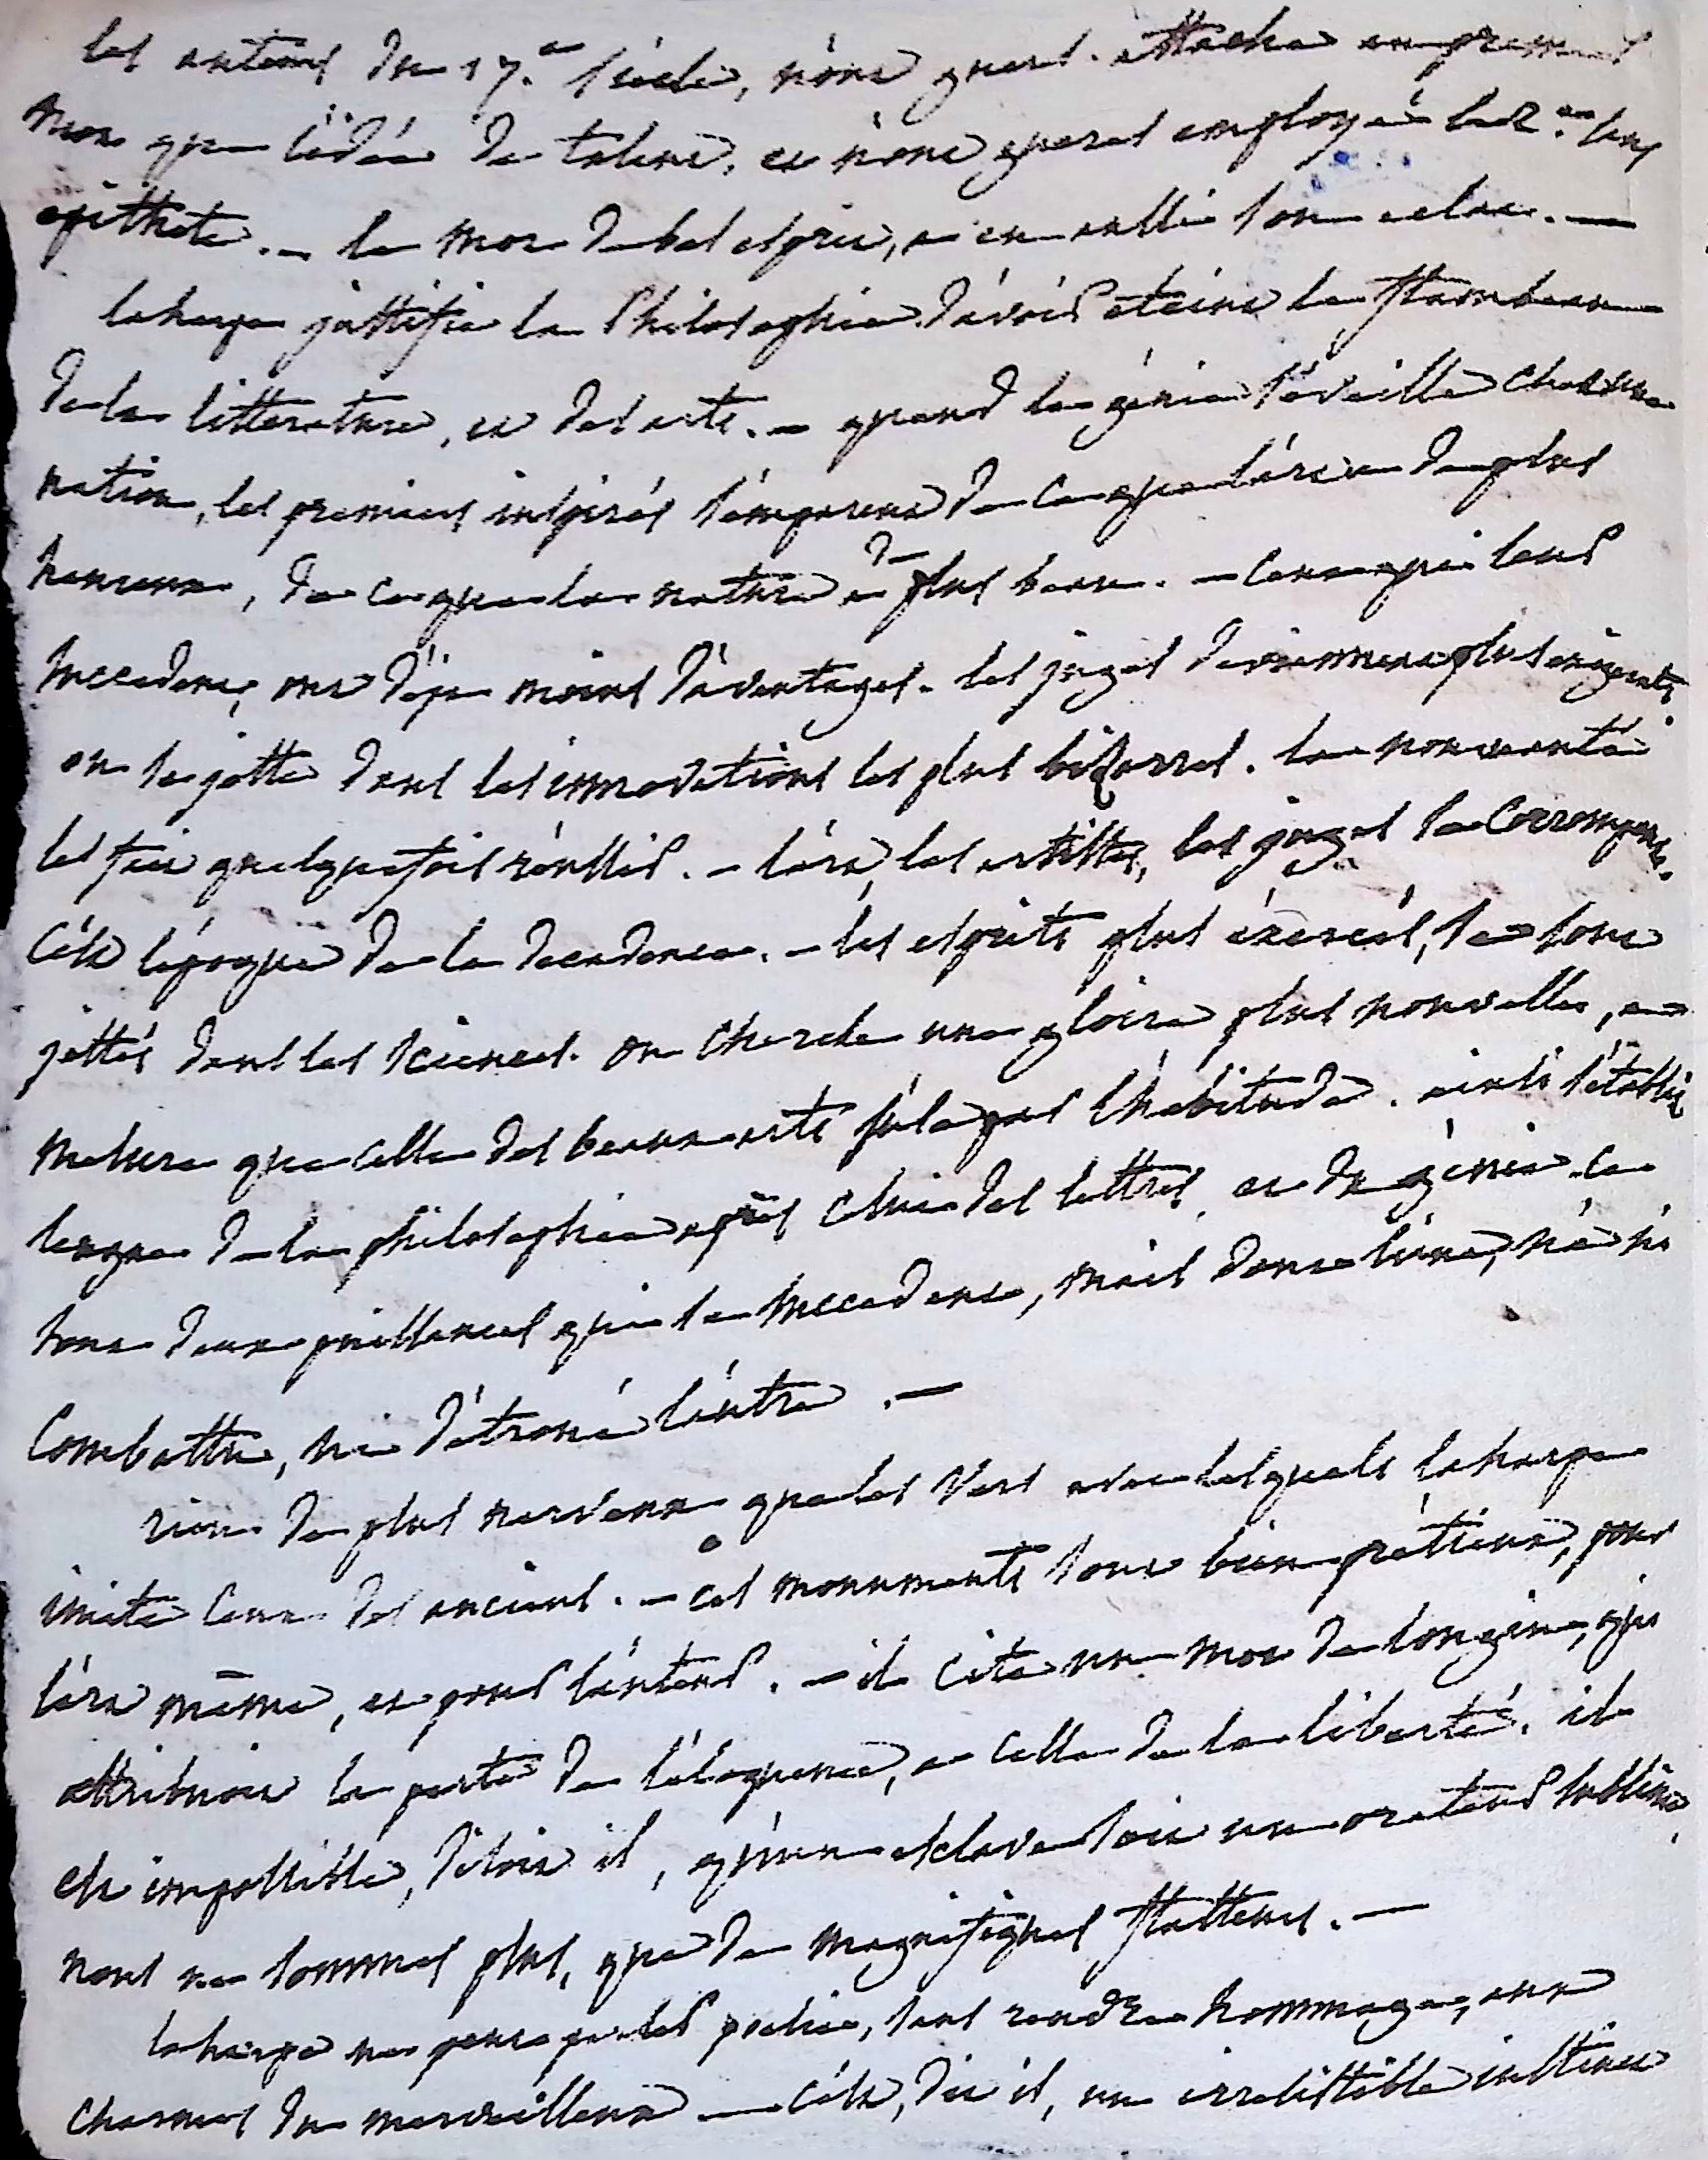 les auteurs du 17.e siècle, n'ont gueres attaché au premier
mot que l'idée de talent, et n'ont gueres employé le 2.em sans
epithete. – le mot de bel esprit, a en vielli son eclat. —
laharpe justifie la Philosophie d'avoir eteint le flambeau
de la litterature, et des arts. – quand le génie s'eveille chez une
nation, les premiers inspirés s'emparent de ce que l'art a de plus
heureux, de ce que la nature a de plus beau. – ceux qui leur
succedent, ont déja moins d'avantages. les juges deviennent plus exigeants,
on se jette dans les innovations les plus bizarres. la nouveauté
les fait quelquefois réussir. – l'art, les artistes, les juges se corrompent.
c'est l'époque de la decadence. – les esprits plus éxercés, se sont
jettés dans les sciences. on cherche une gloire plus nouvelle, a
mesure que celle des beaux arts s'use par l'habitude. ainsi s'etablit
le regne de la philosophie après celui des lettres, et du génie. ce
sont deux puissances qui se succedent, mais dont l'une, n'a ni
combattu, ni détroné l'autre. —
rien de plus nerveux que les vers avec lesquels laharpe
imite ceux des anciens. – ces monuments sont bien prétieux, pour
l'art même, et pour l'auteur. – il cite un mot de longin, qui
attribuoit la perte de l'éloquence, a celle de la liberté. il
est impossible, disoit il, qu'un esclave soit un orateur sublime,
nous ne sommes plus, que de magnifiques flatteurs. —
laharpe ne peut parler poësie, sans rendre hommage, aux
charmes du merveilleux — c'est, dit il, un irresistible instinct